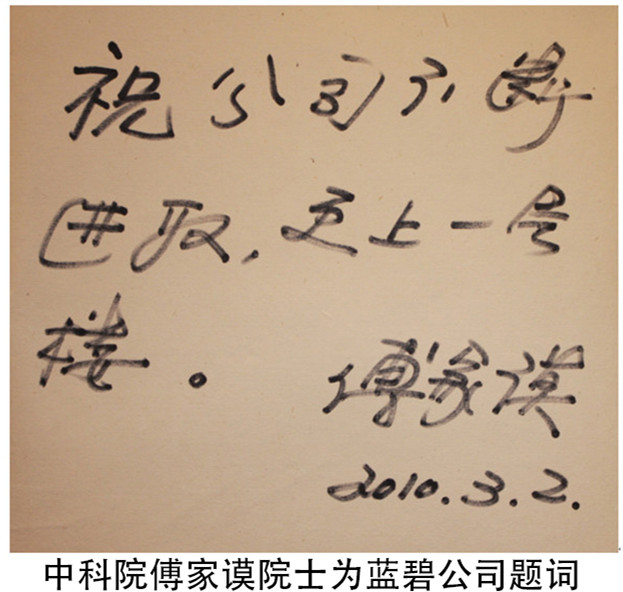 祝公司不断
进取,更上一层
楼。
傅家谟
2010.3.2.
中科院傅家谟院士为蓝碧公司题词